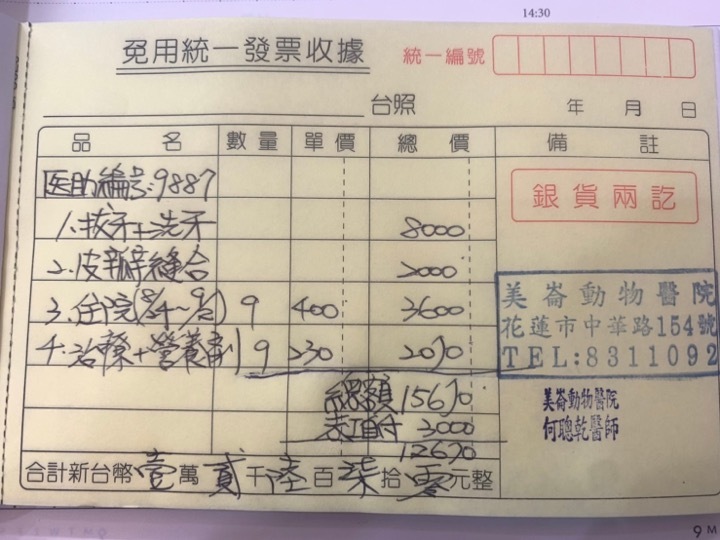 14:30
免用統一發票收據
統一編號
台照 年 月 日
品名 數量 單價 總價 備註
医助編号:9887
銀貨兩訖
1.拔牙+洗牙 8000
2.皮瓣縫合 2000
3.住院(8/24~9/2) 9 400 3600
4.治療+營養劑 9 230 2070
美崙動物醫院
花蓮市中華路154號
TEL:8311092
總額 15670
預付 3000
12670
美崙動物醫院
何聰乾醫師
合計新台幣壹萬貳千陸百柒拾零元整
9 M